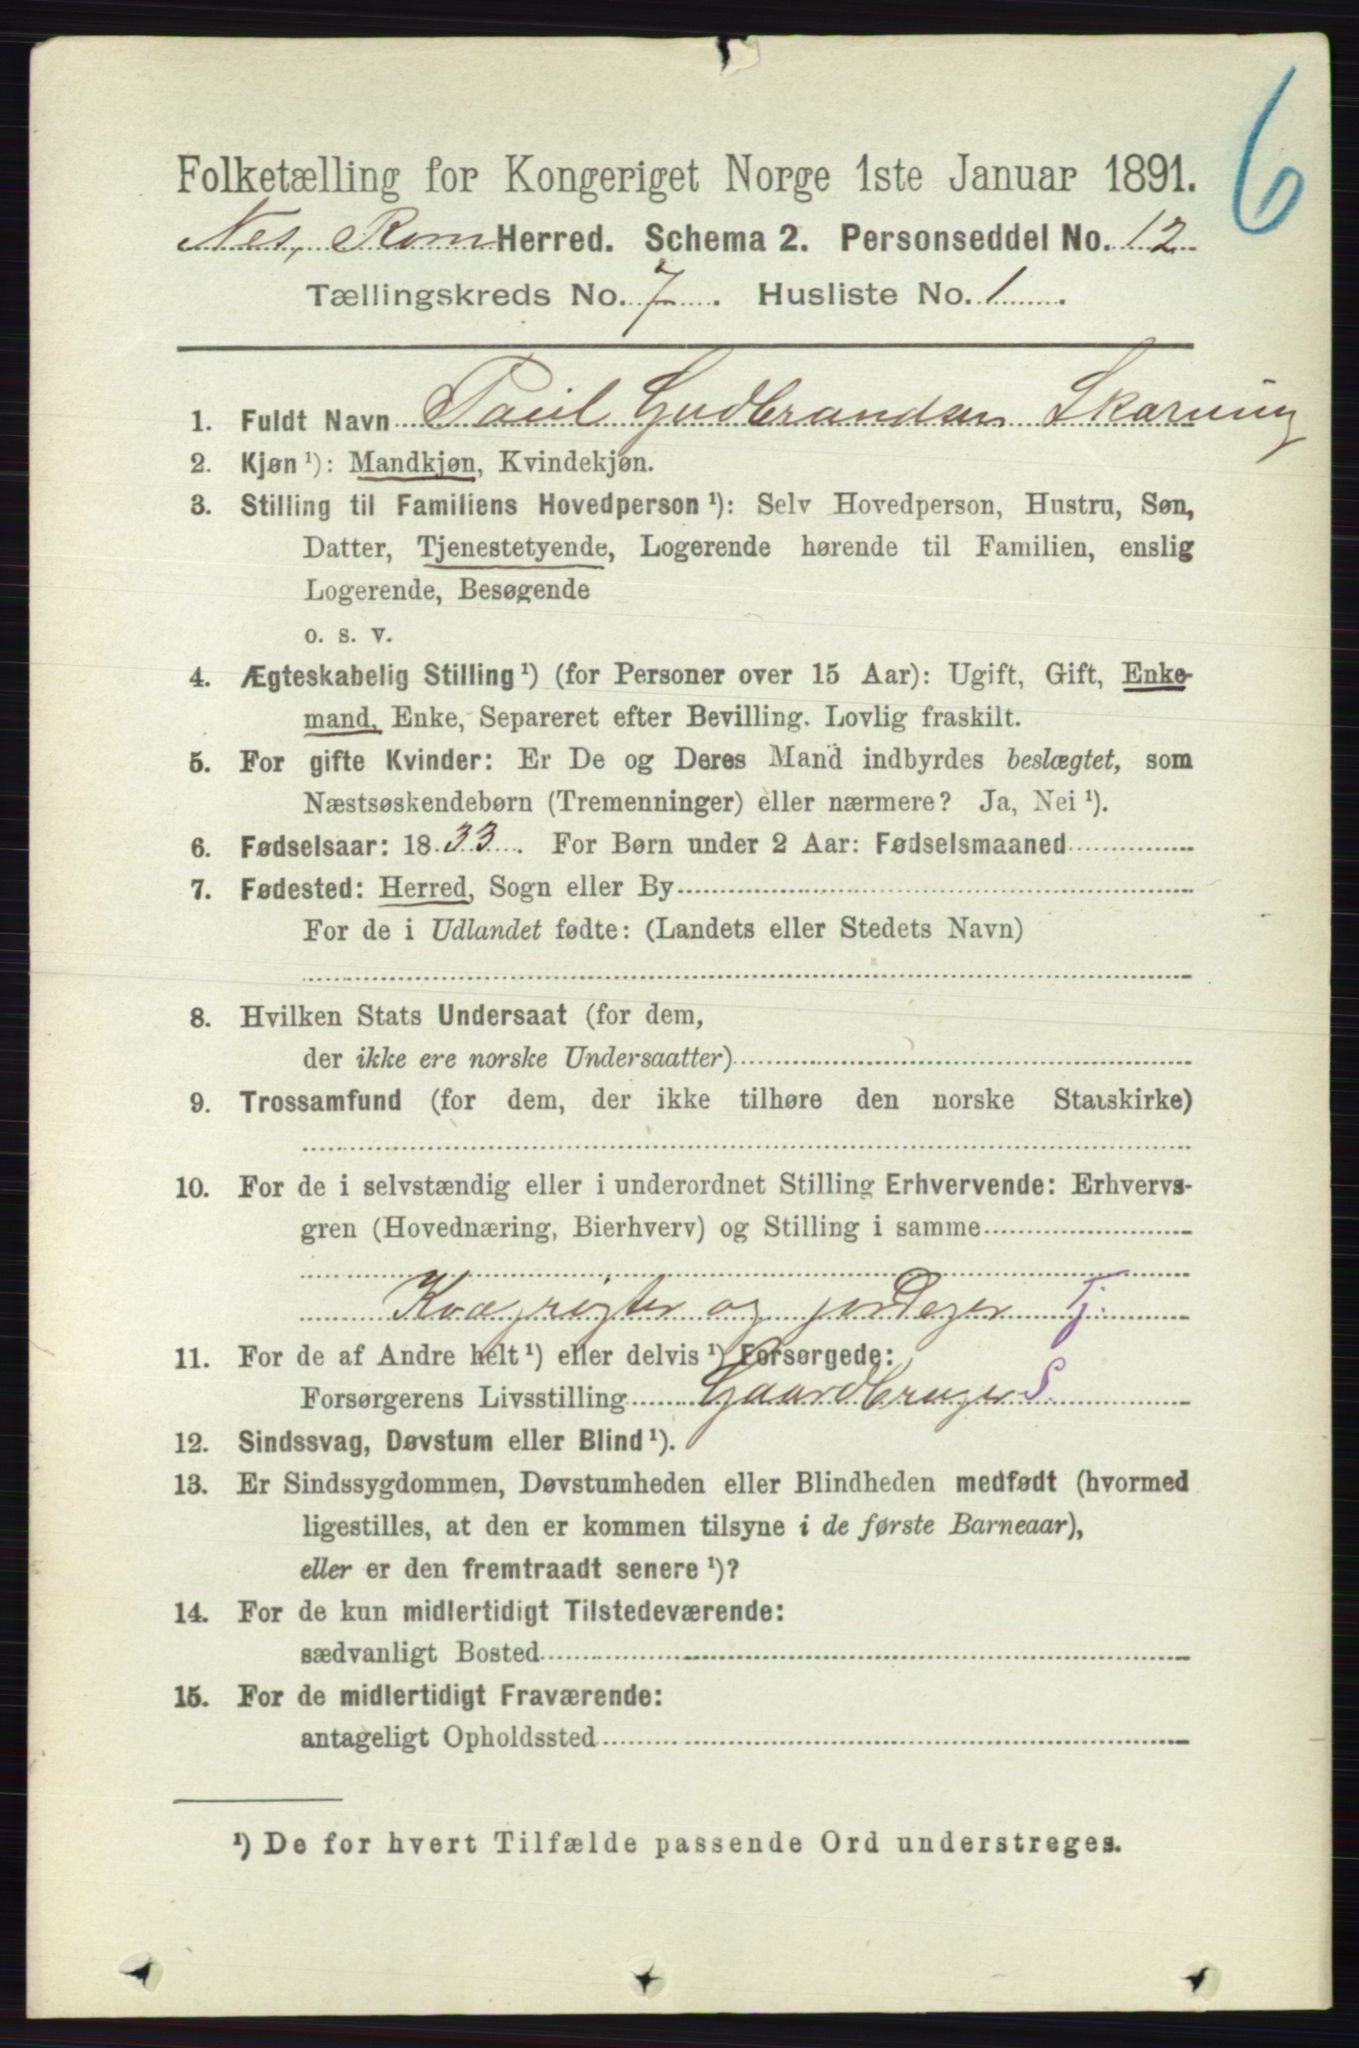 6
Folketælling for Kongeriget Norge 1ste Januar 1891.
Nes, Rom Herred. Schema 2. Personseddel No. 12
Tællingskreds No. 7. Husliste No. 1.
1. Fuldt Navn Paul Gudbrandsen Skarning
2. Kjøn ¹): Mandkjøn, Kvindekjøn.
3. Stilling til Familiens Hovedperson ¹): Selv Hovedperson, Hustru, Søn,
Datter, Tjenestetyende, Logerende hørende til Familien, enslig
Logerende, Besøgende
o. s. v.
4. Ægteskabelig Stilling ¹) (for Personer over 15 Aar): Ugift, Gift, Enke-
mand, Enke, Separeret efter Bevilling. Lovlig fraskilt.
5. For gifte Kvinder: Er De og Deres Mand indbyrdes beslægtet, som
Næstsøskendebørn (Tremenninger) eller nærmere? Ja, Nei ¹).
6. Fødselsaar: 1833. For Børn under 2 Aar: Fødselsmaaned
7. Fødested: Herred, Sogn eller By
For de i Udlandet fødte: (Landets eller Stedets Navn)
8. Hvilken Stats Undersaat (for dem,
der ikke ere norske Undersaatter)
9. Trossamfund (for dem, der ikke tilhøre den norske Statskirke)
10. For de i selvstændig eller i underordnet Stilling Erhvervende: Erhvervs-
gren (Hovednæring, Bierhverv) og Stilling i samme
Kvægrøgter og Tj.
11. For de af Andre helt ¹) eller delvis ¹) Forsørgede:
Forsørgerens Livsstilling Gaardbruger S.
12. Sindssvag, Døvstum eller Blind ¹).
13. Er Sindssygdommen, Døvstumheden eller Blindheden medfødt (hvormed
ligestilles, at den er kommen tilsyne i de første Barneaar),
eller er den fremtraadt senere ¹)?
14. For de kun midlertidigt Tilstedeværende:
sædvanligt Bosted
15. For de midlertidigt Fraværende:
antageligt Opholdssted
¹) De for hvert Tilfælde passende Ord understreges.